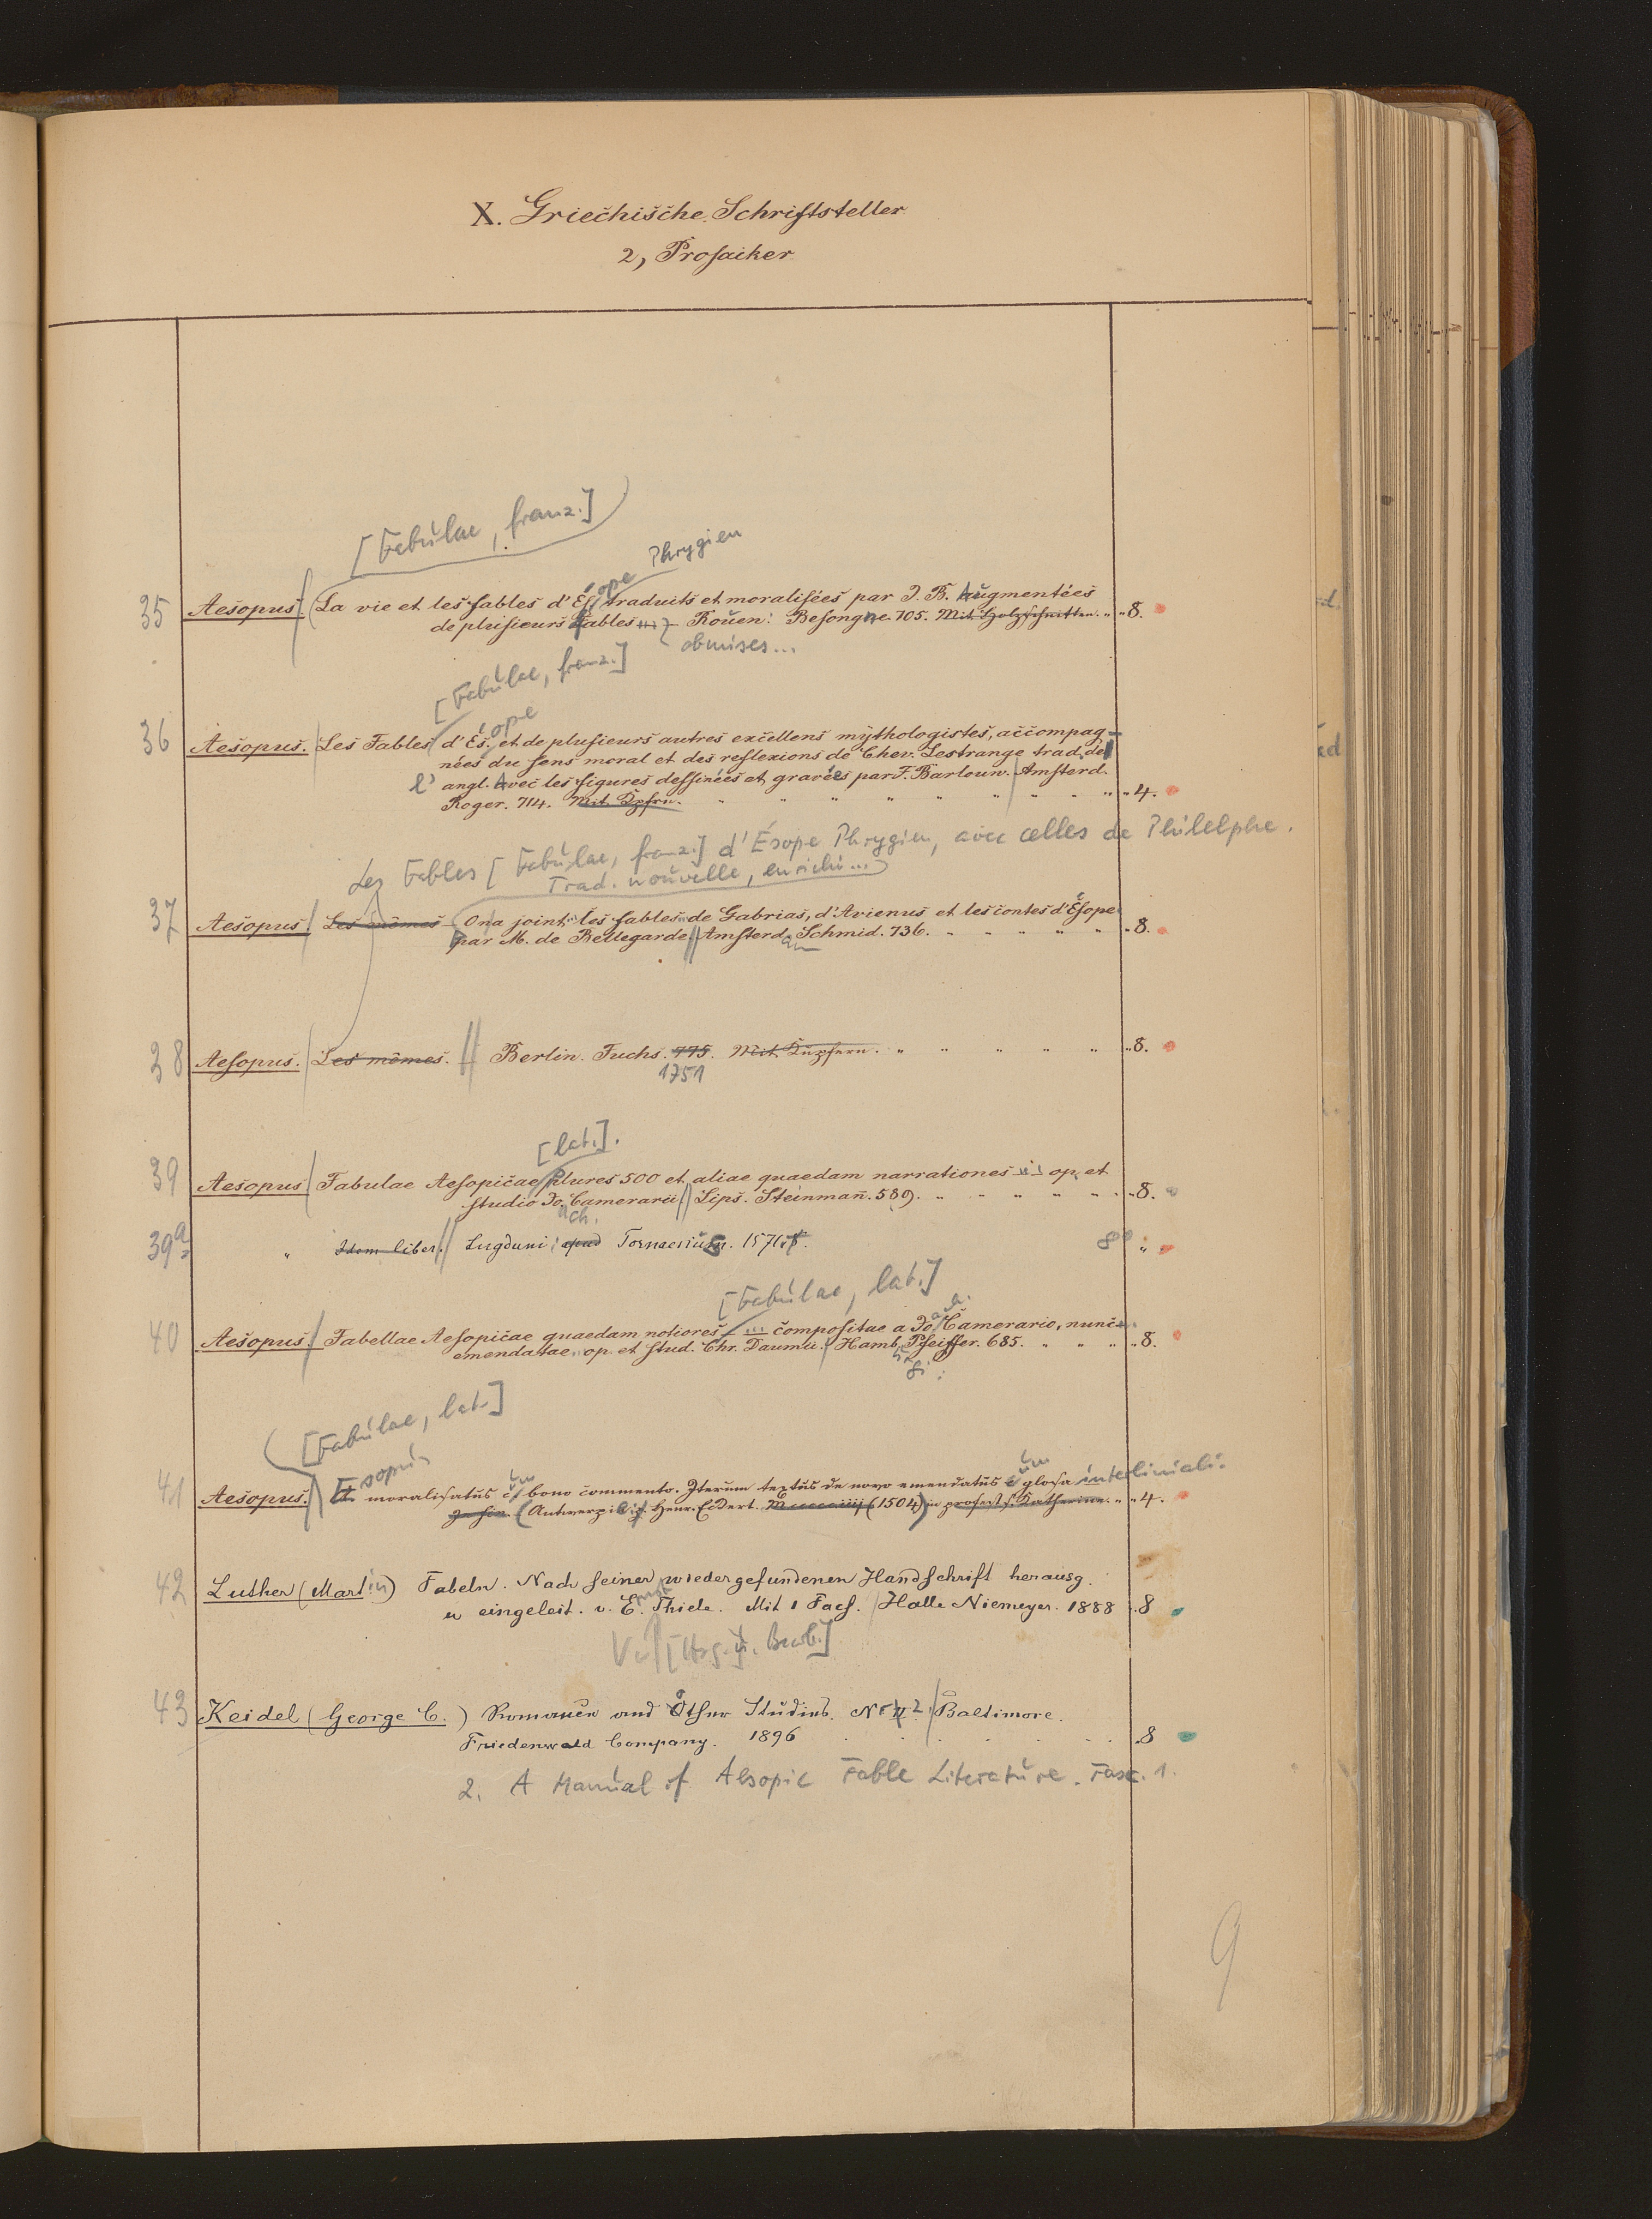 X. Griechische Schriftsteller
2, Prosaiker
[Fabulae, franz.]
Phrygien
ope
35 Aesopus. La vie et les fables d'Es. traduits et moralisées par J. B. Augmentées
de plusieurs Fables ... Rouen: Besongne. 705. Mit Holzschnitten. " " 8.
obmises...
[Fabulae, franz.]
ope
36 Aesopus. Les Fables d'Es. et de plusieurs autres excellens mythologistes, accompag-
nées du sens moral et des reflexions de Chev. Lestrange trad. de
l' angl. Avec les figures dessinées et gravées par F. Barlouw. Amsterd.
Roger. 714. Mit Kpfrn. " " " " " " " " " 4.
Les Fables [Fabulae, franz.] d'Ésope Phrygien, avec celles de Philelphe.
Trad. nouvelle, enrichi...
37 Aesopus. Les mêmes On a joint les fables de Gabrias, d'Avienus et les contes d'Ésope
par M. de Bellegarde. Amsterd. Schmid. 736. " " " " " " 8.
am
38 Aesopus. Les mêmes. Berlin. Fuchs. 775. Mit Kupfern. " " " " " " 8.
1751
[lat.].
39 Aesopus Fabulae Aesopicae plures 500 et aliae quaedam narrationes ... op. et
studio Jo. Camerarii. Lips. Steinmañ. 589. " " " " " " 8.
ach.
39a " Idem liber. Lugduni apud Tornaesius. 1571. 8°° "
[Fabulae, lat.]
ach.
40 Aesopus. Fabellae Aesopicae quaedam notiores ... compositae a Jo. Camerario, nunc
emendatae. op. et stud. Chr. Daumii. Hamb. Pfeiffer. 685. " " " " 8.
[Fabulae, lat.]
Esopus
um um
41 Aesopus. moralisatus c bono commento. Iterum textus de novo emendatus c glosa interliniali.
Antwerpi Henr. Eckert. (1504) in profest s. Katherine. " " 4.
42 Luther (Martin) Fabeln. Nach seiner wiedergefundenen Handschrift herausg.
u eingeleit. v. E. Thiele. Mit 1 Facs. Halle Niemeyer. 1888 8
rnst
[Hrsg. u. Bearb.]
43 Keidel (George C.) Romance and Other Studies. Nr 2. Baltimore.
Friedenwald Company. 1896 8
2. A Manual of Aesopic Fable Literature. Fasc. 1.
9